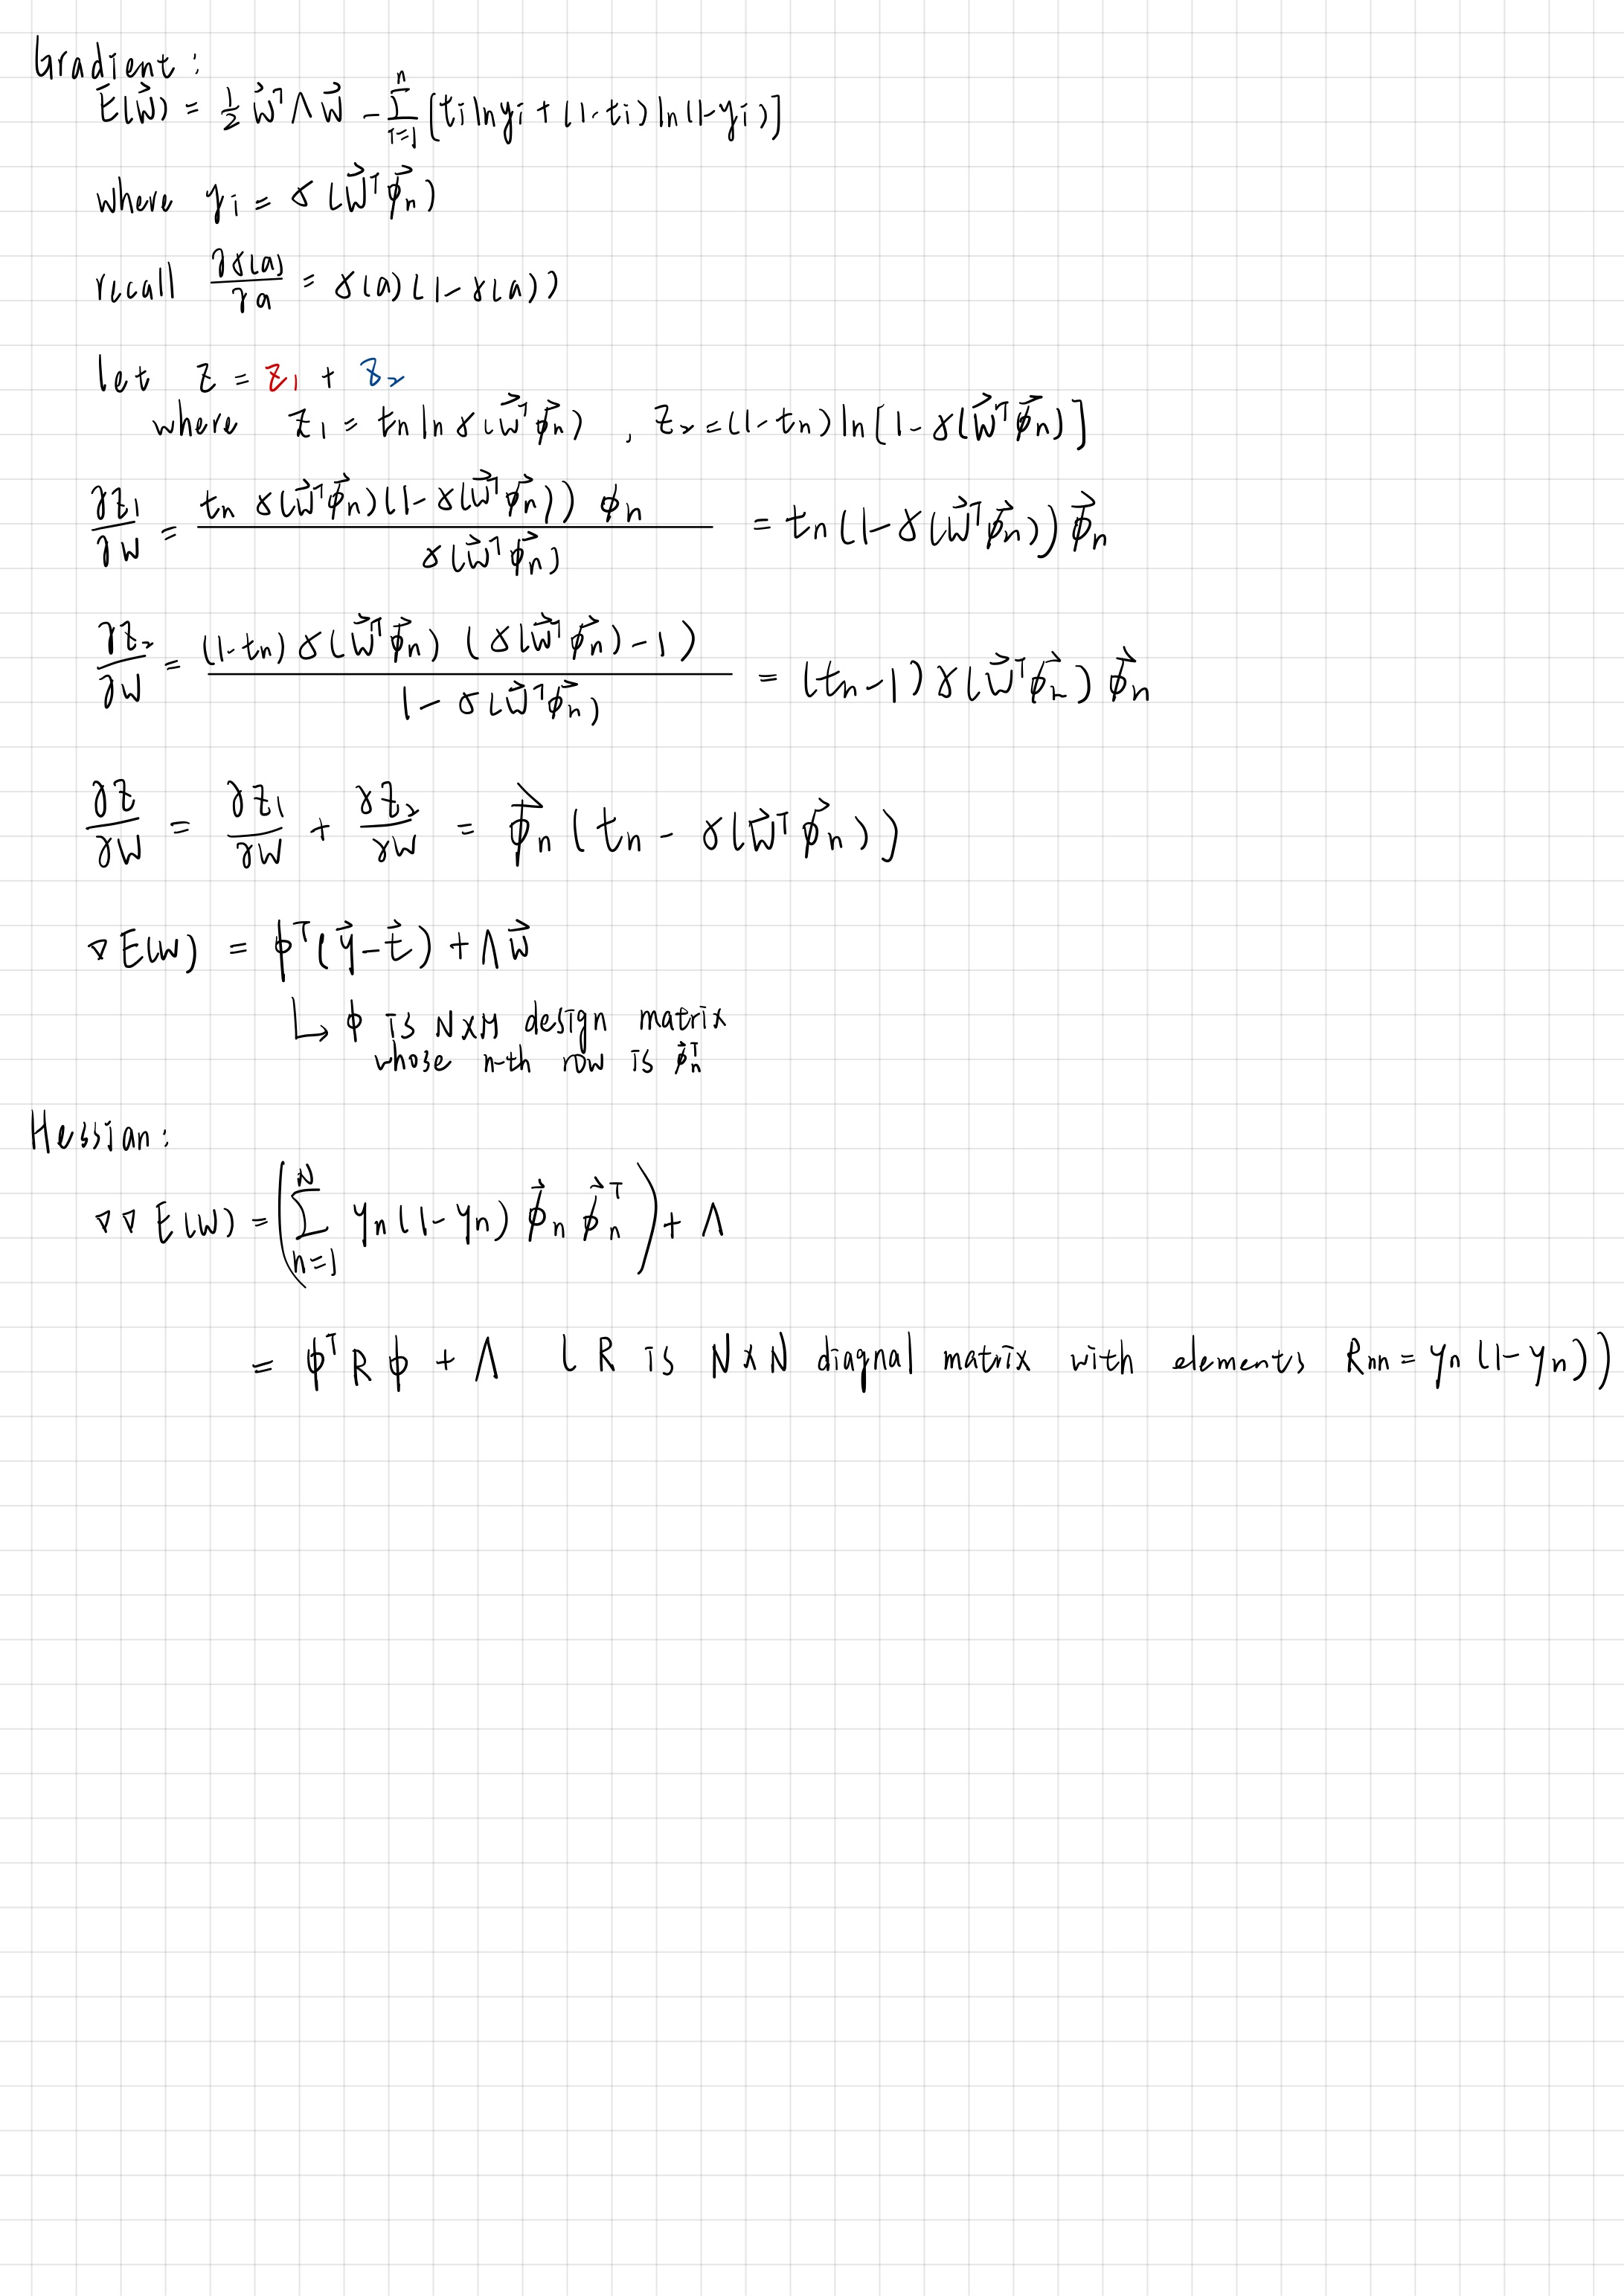 Gradient:
E(w⃗) = 1/2 w⃗ᵀ Λ w⃗ - Σ_{i=1}^{n} [ti ln yi + (1-ti) ln(1-yi)]
where yi = σ(w⃗ᵀ ϕ⃗n)
recall ∂σ(a)/∂a = σ(a)(1-σ(a))
let z = z1 + z2
where z1 = tn ln σ(w⃗ᵀ ϕ⃗n) , z2 = (1-tn) ln[1-σ(w⃗ᵀ ϕ⃗n)]
∂z1/∂w = tn σ(w⃗ᵀ ϕ⃗n)(1-σ(w⃗ᵀ ϕ⃗n)) ϕn / σ(w⃗ᵀ ϕ⃗n) = tn (1-σ(w⃗ᵀ ϕ⃗n)) ϕ⃗n
∂z2/∂w = (1-tn) σ(w⃗ᵀ ϕ⃗n) (σ(w⃗ᵀ ϕ⃗n)-1) / 1-σ(w⃗ᵀ ϕ⃗n) = (tn-1) σ(w⃗ᵀ ϕ⃗n) ϕ⃗n
∂z/∂w = ∂z1/∂w + ∂z2/∂w = ϕ⃗n (tn - σ(w⃗ᵀ ϕ⃗n))
∇E(w) = ϕᵀ(y⃗-t⃗) + Λw⃗
↳ ϕ is N×M design matrix
whose n-th row is ϕ⃗nᵀ
Hessian:
∇∇E(w) = (Σ_{n=1}^{N} yn(1-yn) ϕ⃗n ϕ⃗nᵀ) + Λ
= ϕᵀ R ϕ + Λ (R is N×N diagnal matrix with elements Rnn = yn(1-yn))